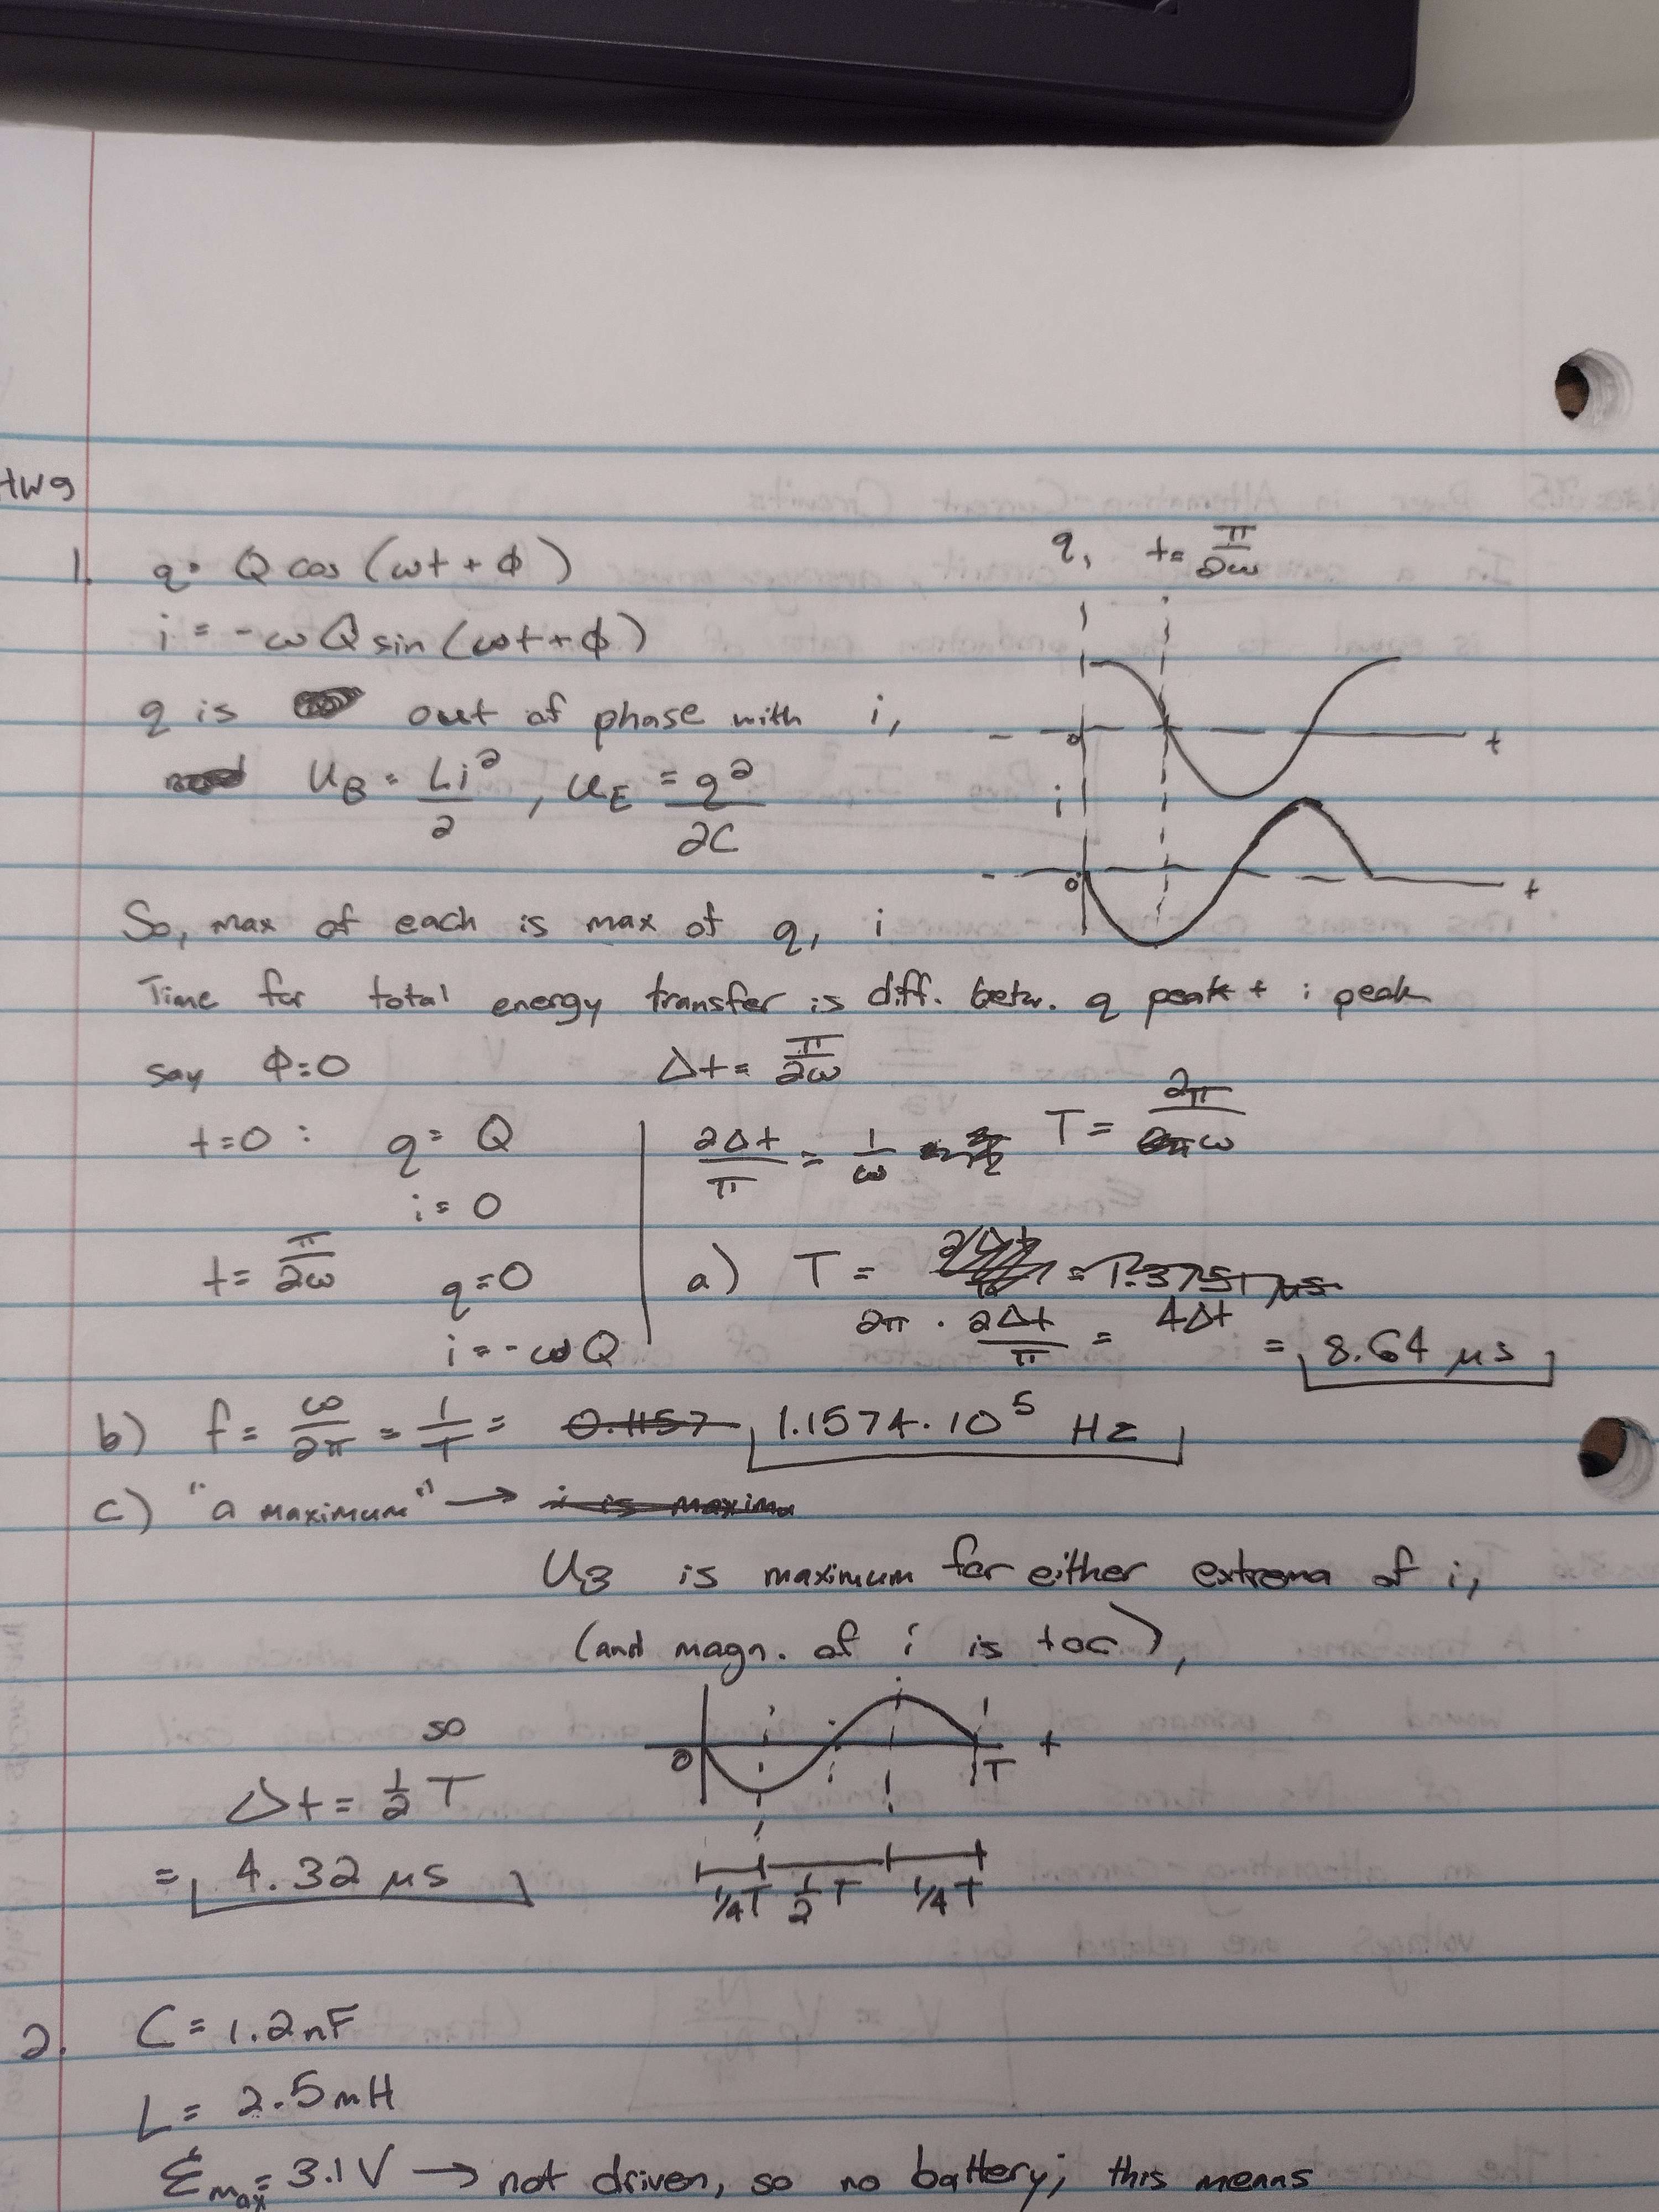 HW9
1. q = Q cos (ωt + Φ)
i = -ωQ sin (ωt + Φ)
q is out of phase with i,
U_B = Li²/2 , U_E = q²/2C
q, t = π/2ω
0 t
i
0 t
So, max of each is max of q, i
Time for total energy transfer is diff. betw. q peak + i peak
say Φ=0 Δt = π/2ω
t=0 : q = Q
i = 0
t = π/2ω q=0
i = -ωQ
2Δt/π = 1/ω T = 2π/ω
a) T = 1.3751 μs
2π · 2Δt/π = 4Δt = 8.64 μs
b) f = ω/2π = 1/T = 0.1157 1.1574·10⁵ Hz
c) "a maximum" → i is maxima
U_B is maximum for either extrema of i,
(and magn. of i is too),
so
0 T t
Δt = ½ T
= 4.32 μs
¼T ½T ¼T
2. C = 1.2nF
L = 2.5mH
ℰmax = 3.1V → not driven, so no battery; this means